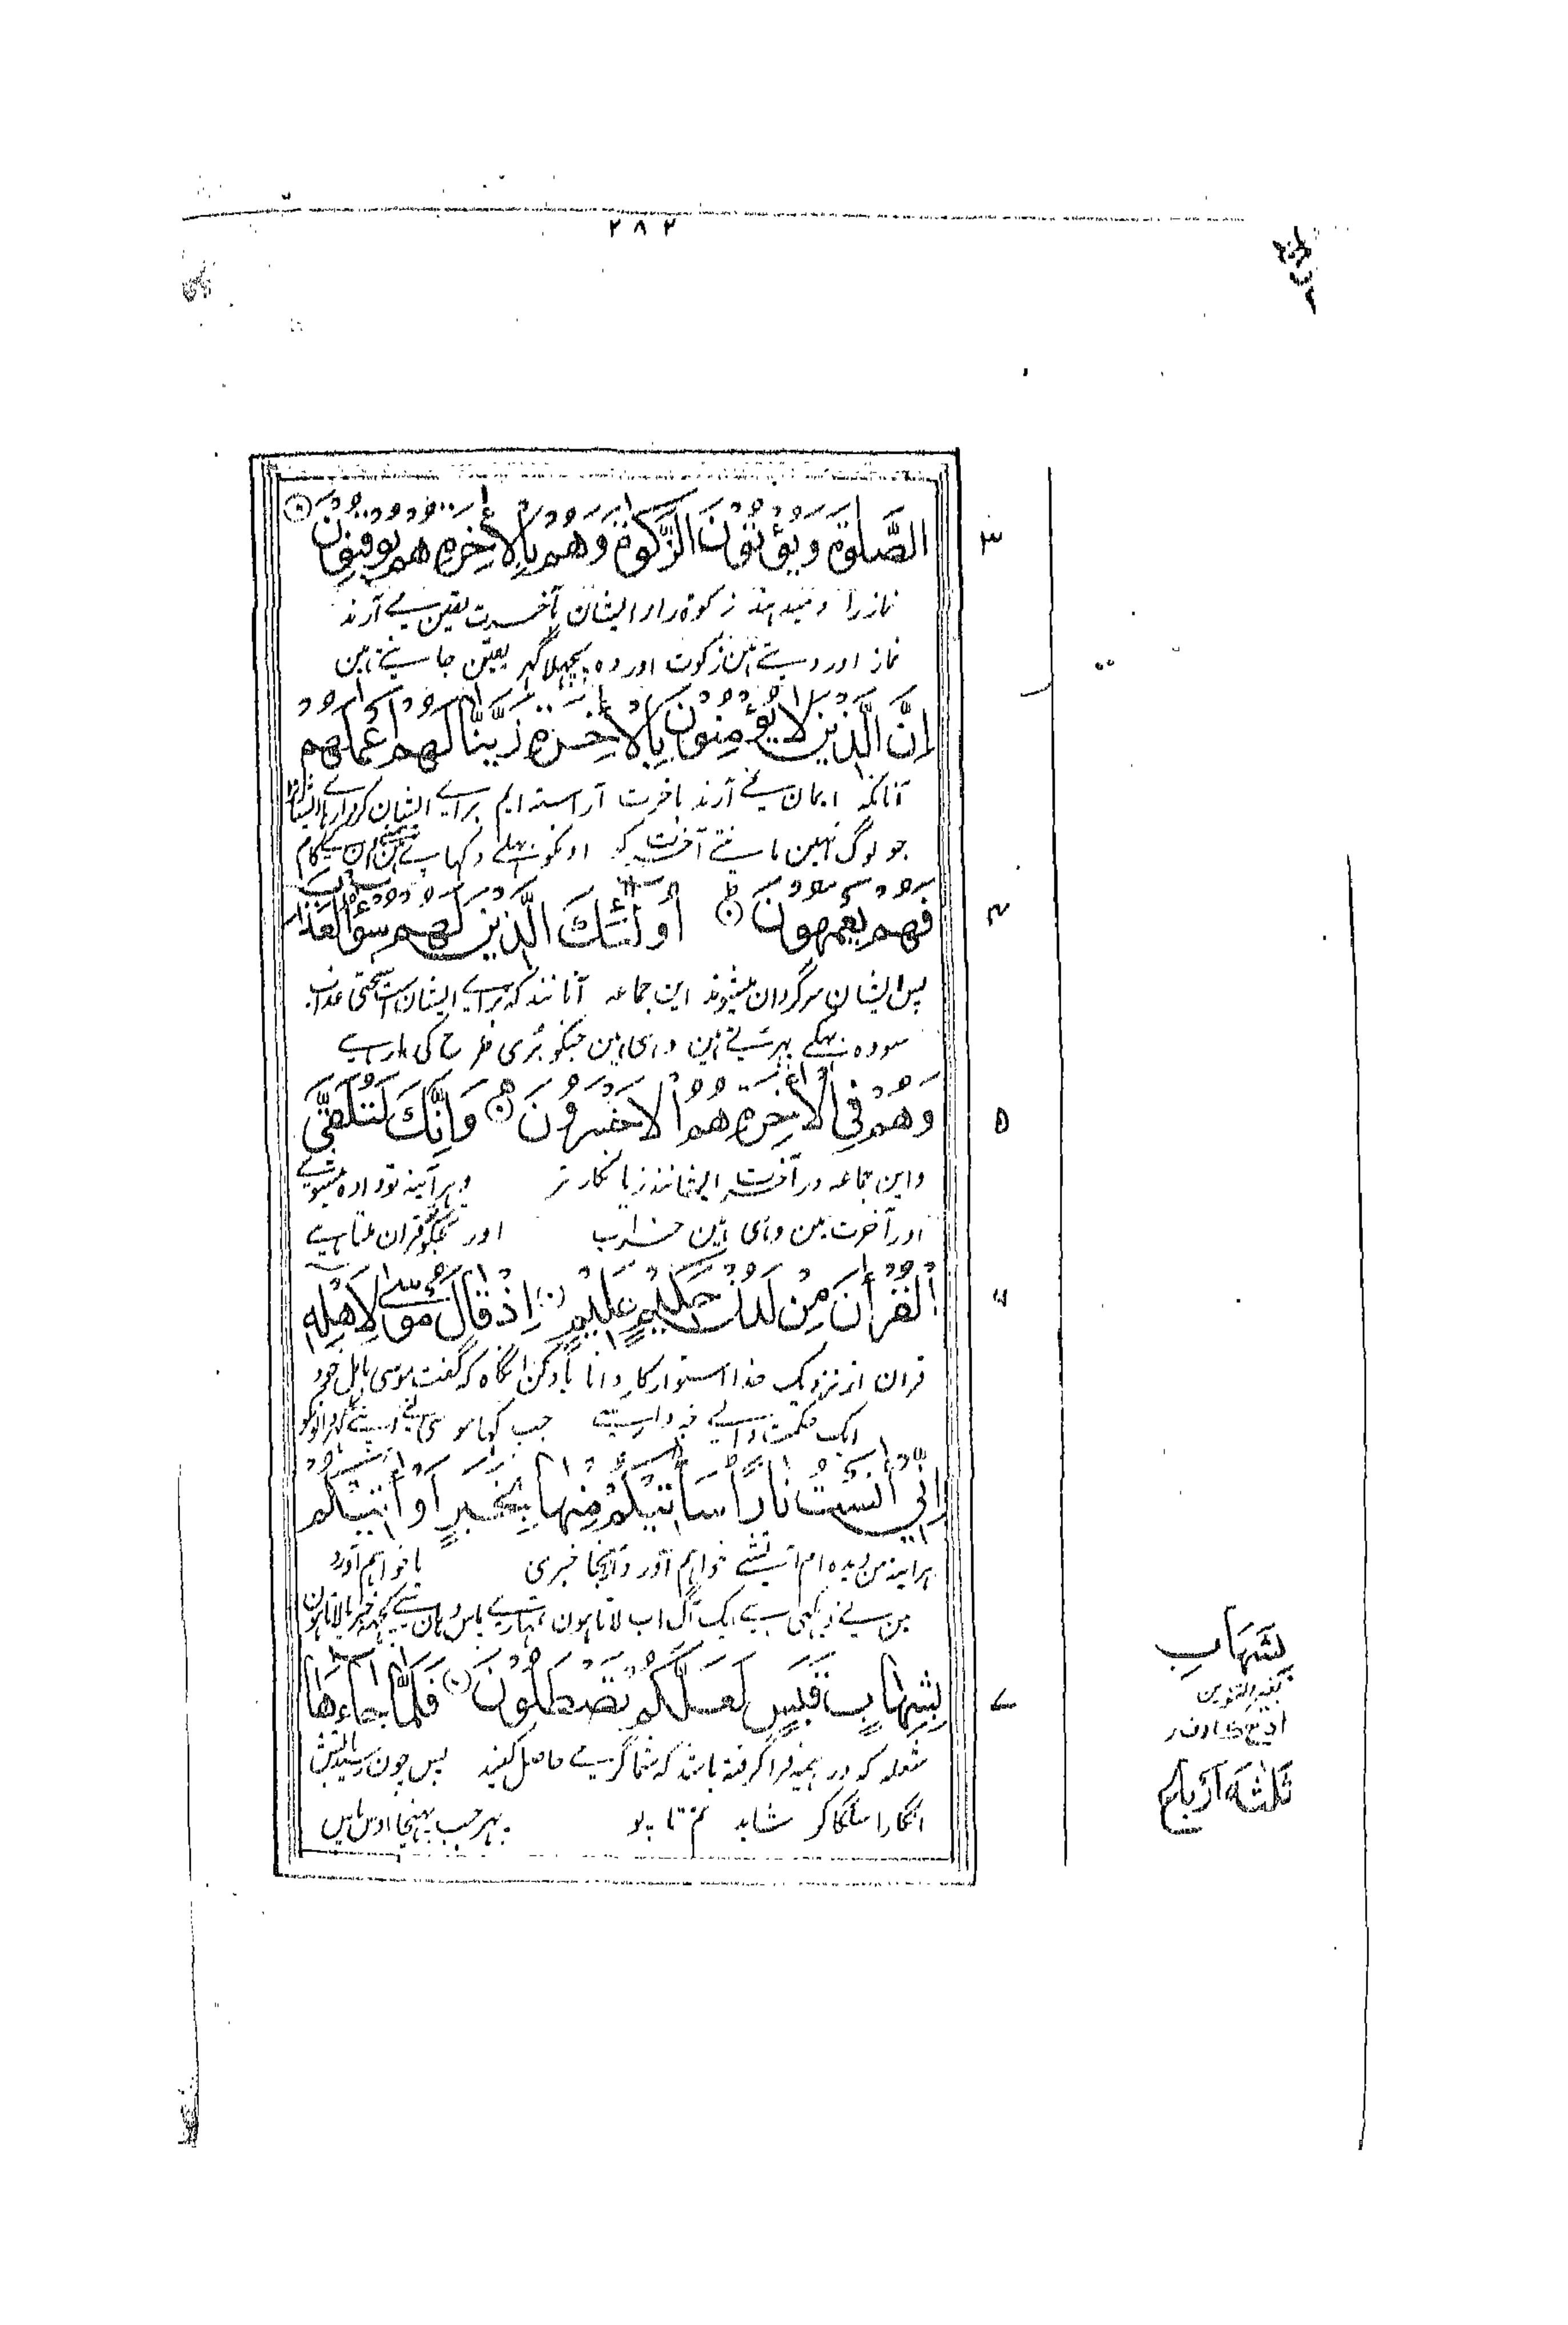 ٢٨٢
الصَّلٰوةَ وَيُؤْتُوْنَ الزَّكٰوةَ وَهُمْ بِالْاٰخِرَةِ هُمْ يُوْقِنُوْنَ
٣
نماز را و میدہند زکوة را و ایشان بآخرت یقین مے آرند
نماز اور دیتے ہین زکوت اور وہ پچہلا گہر یقین جانتے ہین
اِنَّ الَّذِيْنَ لَا يُؤْمِنُوْنَ بِالْاٰخِرَةِ زَيَّنَّا لَهُمْ اَعْمٰلَهُمْ
آنانکہ ایمان نمے آرند باخرت آراستہ ایم براے ایشان کردارہاے ایشانرا
جو لوگ نہین مانتے آخرت کو اونکو بہلے دکہاے ہین اون کے کام
فَهُمْ يَعْمَهُوْنَ اُولٰٓئِكَ الَّذِيْنَ لَهُمْ سُوْٓءُ الْعَذَابِ
٤
پس ایشان سرگردان میشوند این جماعہ آنانند کہ براے ایشان است سختی عذاب
سو وہ بہکے پہرتے ہین وہی ہین جنکو بُری طرح کی مار ہے
وَهُمْ فِي الْاٰخِرَةِ هُمُ الْاَخْسَرُوْنَ وَاِنَّكَ لَتُلَقَّى
٥
واین جماعہ در آخرت ایشانند زیانکارتر و ہرآئینہ تو دادہ میشوے
اور آخرت مین وہی ہین خراب اور تجکو قران ملتا ہے
الْقُرْاٰنَ مِنْ لَّدُنْ حَكِيْمٍ عَلِيْمٍ اِذْ قَالَ مُوْسٰى لِاَهْلِهٖ
٦
قران از نزدیک خدا استوارکار دانا یاد کن انگاہ کہ گفت موسی باہل خود
ایک حکمت والے خبردار سے جب کہا موسی نے اپنے گہر والونکو
اِنِّيْٓ اٰنَسْتُ نَارًا سَاٰتِيْكُمْ مِّنْهَا بِخَبَرٍ اَوْ اٰتِيْكُمْ
ہراینہ من دیدہ ام اتشے خواہم آورد از انجا خبری یا خواہم آورد
مین نے دیکہی ہے ایک آگ اب لاتا ہون تمہارے پاس وہان سے کچہہ خبر یا لاتا ہون
بِشِهَابٍ قَبَسٍ لَّعَلَّكُمْ تَصْطَلُوْنَ فَلَمَّا جَآءَهَا
٧
شعلہ کہ در ہیمہ فرا گرفتہ باشد کہ شما گرمے حاصل کنید پس چون رسید باتش
انگارا سلگا کر شاید تم تاپو پہر جب پہنچا اوس پاس
بِشَهَابِ
بغیر التنوین
ثَلٰثَةُ اَرْبَاعٍ